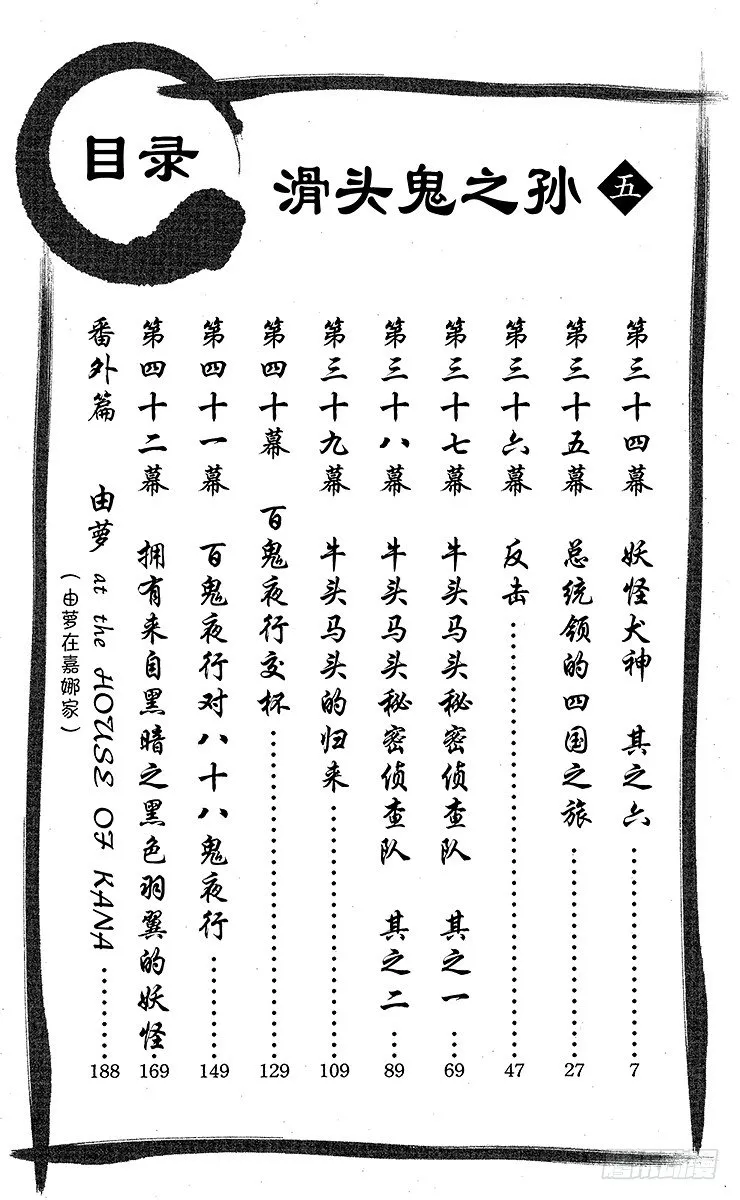 目录
滑头鬼之孙 五
第三十四幕 妖怪犬神 其之六……………7
第三十五幕 总统领的四国之旅……………27
第三十六幕 反击……………47
第三十七幕 牛头马头秘密侦查队 其之一…69
第三十八幕 牛头马头秘密侦查队 其之二…89
第三十九幕 牛头马头的归来……………109
第四十幕 百鬼夜行交杯……………129
第四十一幕 百鬼夜行对八十八鬼夜行……149
第四十二幕 拥有来自黑暗之黑色羽翼的妖怪…169
番外篇 由萝 at the HOUSE OF KANA……188
(由萝在嘉娜家)